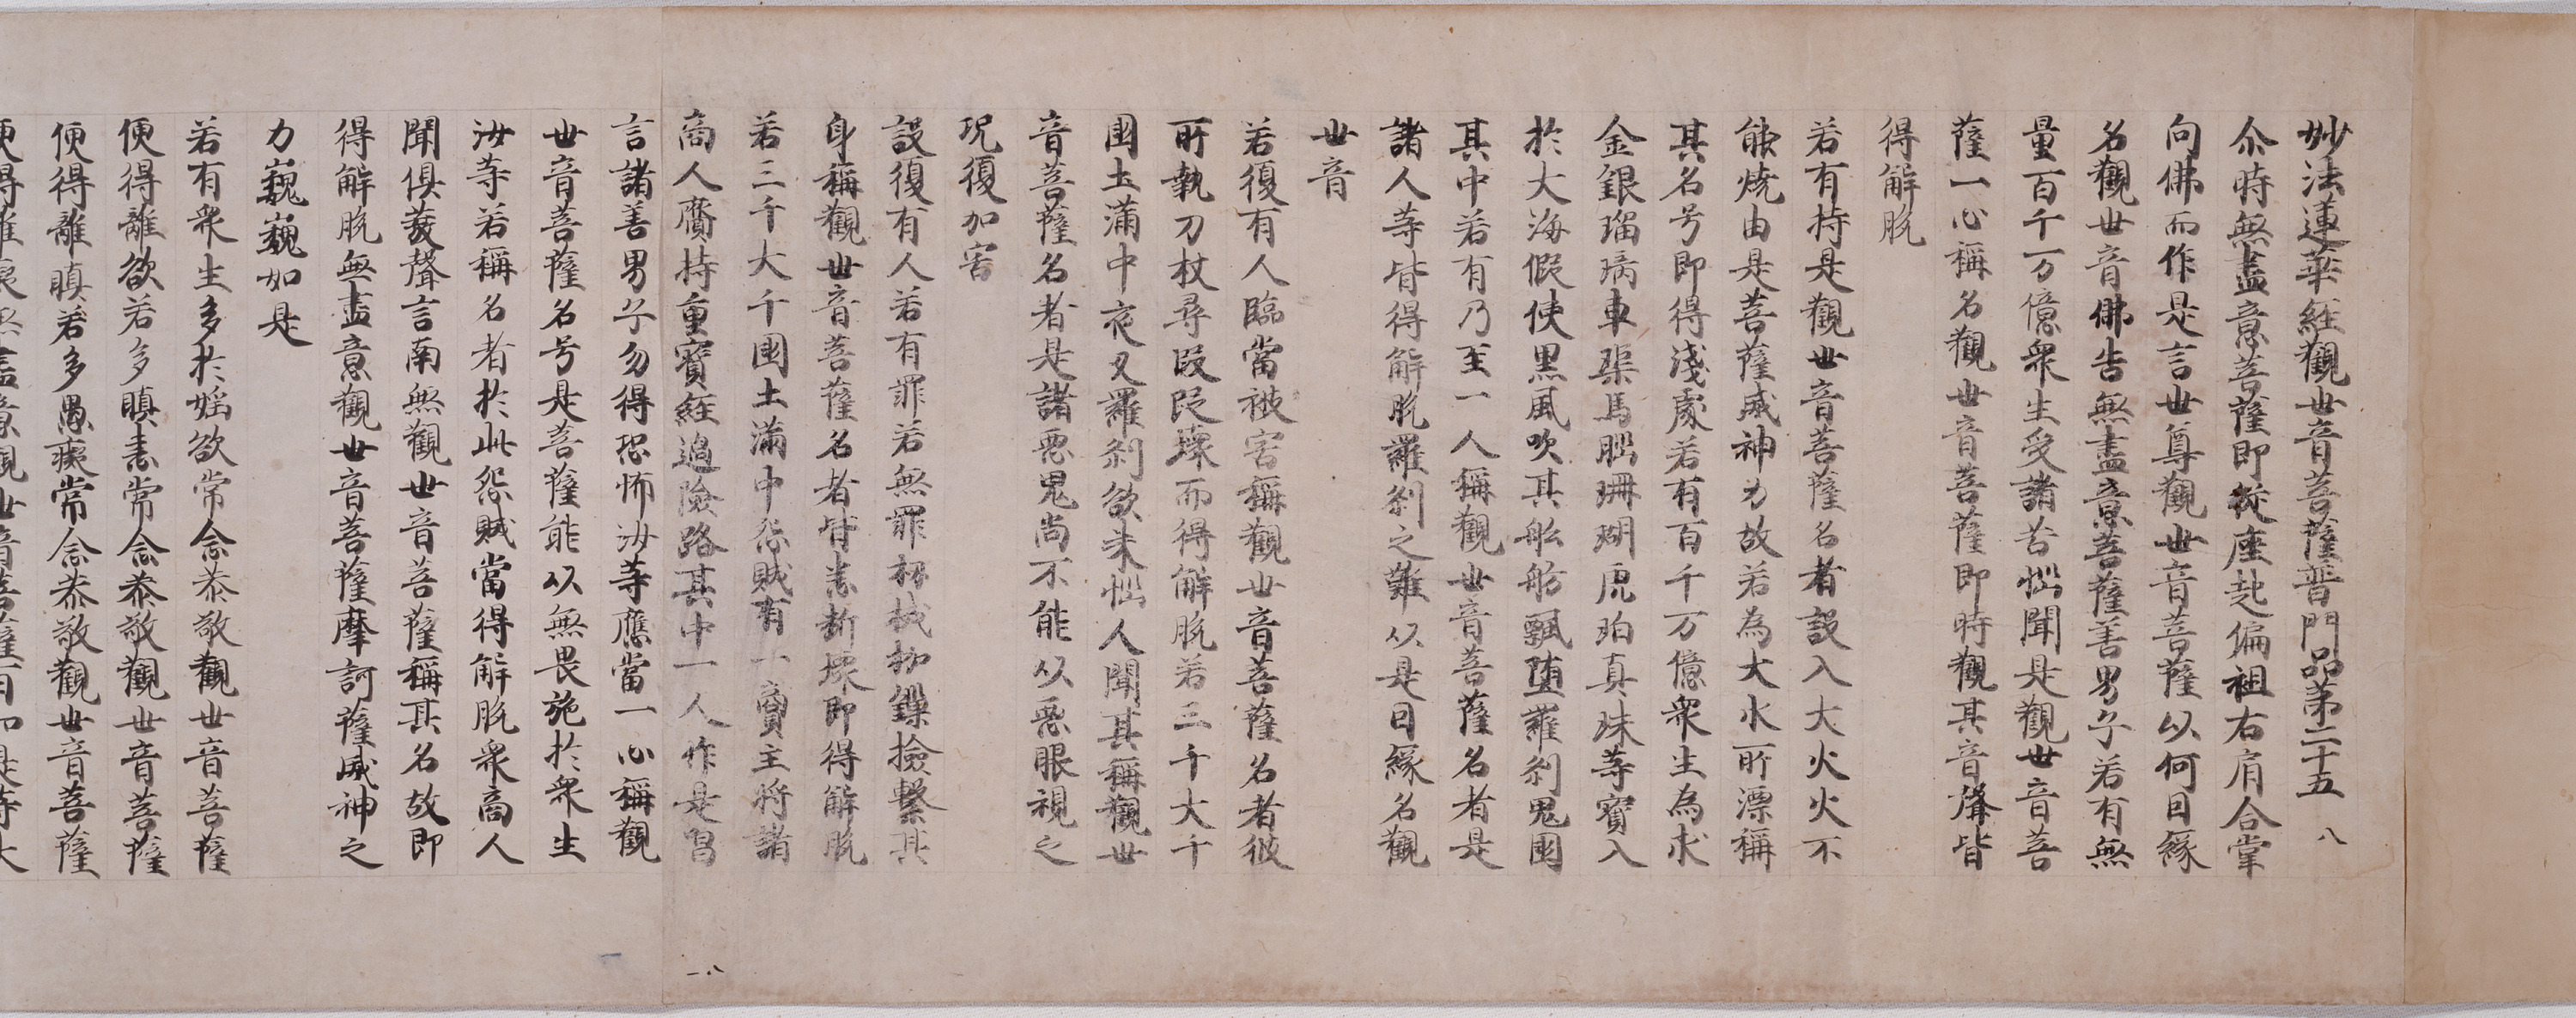 妙法蓮華經觀世音菩薩普門品第二十五 八
尒時無盡意菩薩即從座起偏袒右肩合掌
向佛而作是言世尊觀世音菩薩以何因緣
名觀世音佛告無盡意菩薩善男子若有無
量百千万億衆生受諸苦惱聞是觀世音菩
薩一心稱名觀世音菩薩即時觀其音聲皆
得解脫
若有持是觀世音菩薩名者設入大火火不
能燒由是菩薩威神力故若為大水所漂稱
其名号即得淺處若有百千万億衆生為求
金銀瑠璃車渠馬瑙珊瑚虎珀真珠等寶入
於大海假使黑風吹其舩舫飄墮羅剎鬼國
其中若有乃至一人稱觀世音菩薩名者是
諸人等皆得解脫羅剎之難以是因緣名觀
世音
若復有人臨當被害稱觀世音菩薩名者彼
所執刀杖尋段段壞而得解脫若三千大千
國土滿中夜叉羅剎欲来惱人聞其稱觀世
音菩薩名者是諸惡鬼尚不能以惡眼視之
況復加害
設復有人若有罪若無罪杻械枷鏁撿繫其
身稱觀世音菩薩名者皆悉斷壞即得解脫
若三千大千國土滿中怨賊有一商主將諸
商人齎持重寶經過險路其中一人作是唱
言諸善男子勿得恐怖汝等應當一心稱觀
世音菩薩名号是菩薩能以無畏施於衆生
汝等若稱名者於此怨賊當得解脫衆商人
聞俱發聲言南無觀世音菩薩稱其名故即
得解脫無盡意觀世音菩薩摩訶薩威神之
力巍巍如是
若有衆生多於婬欲常念恭敬觀世音菩薩
便得離欲若多瞋恚常念恭敬觀世音菩薩
便得離瞋若多愚癡常念恭敬觀世音菩薩
便得離癡無盡意觀世音菩薩有如是等大
一
一八